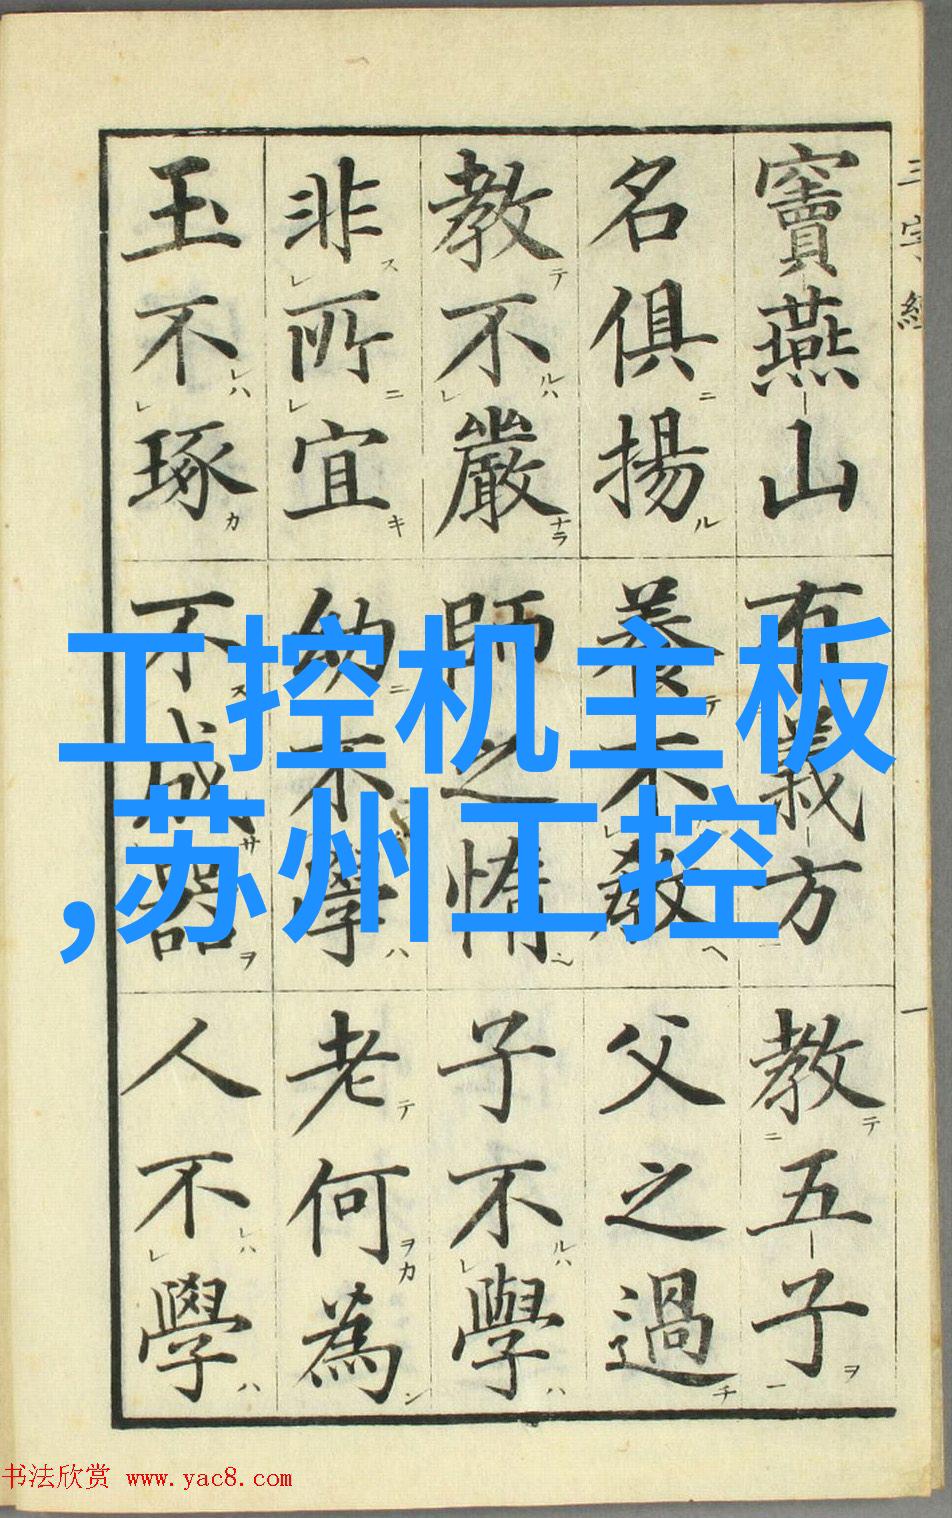 三字經
竇燕山有義方教五子
名俱揚養不教父之過
教不嚴師之惰子不學
非所宜幼不學老何為
玉不琢不成器人不學
工控机主板
,苏州工控
书法欣赏 www.yac8.com